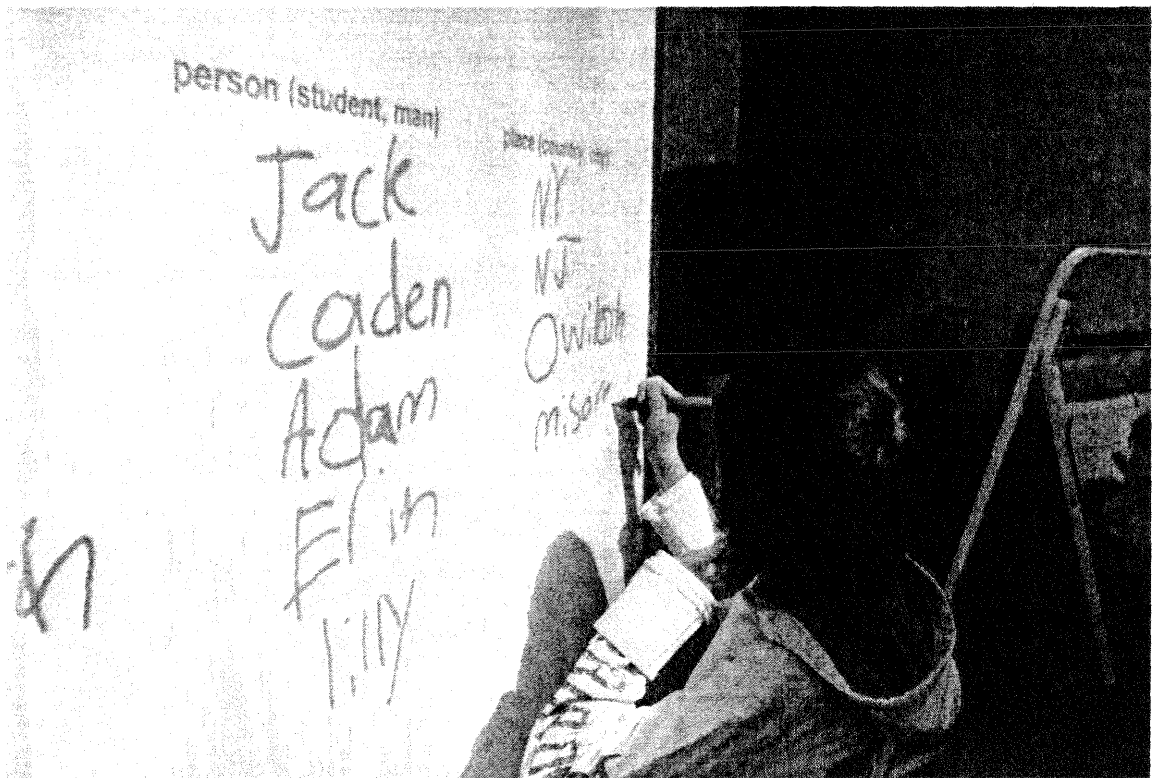 person (student, man)
Jack
Caden
Adam
Erin
lily
place (country, city)
NY
NJ
in